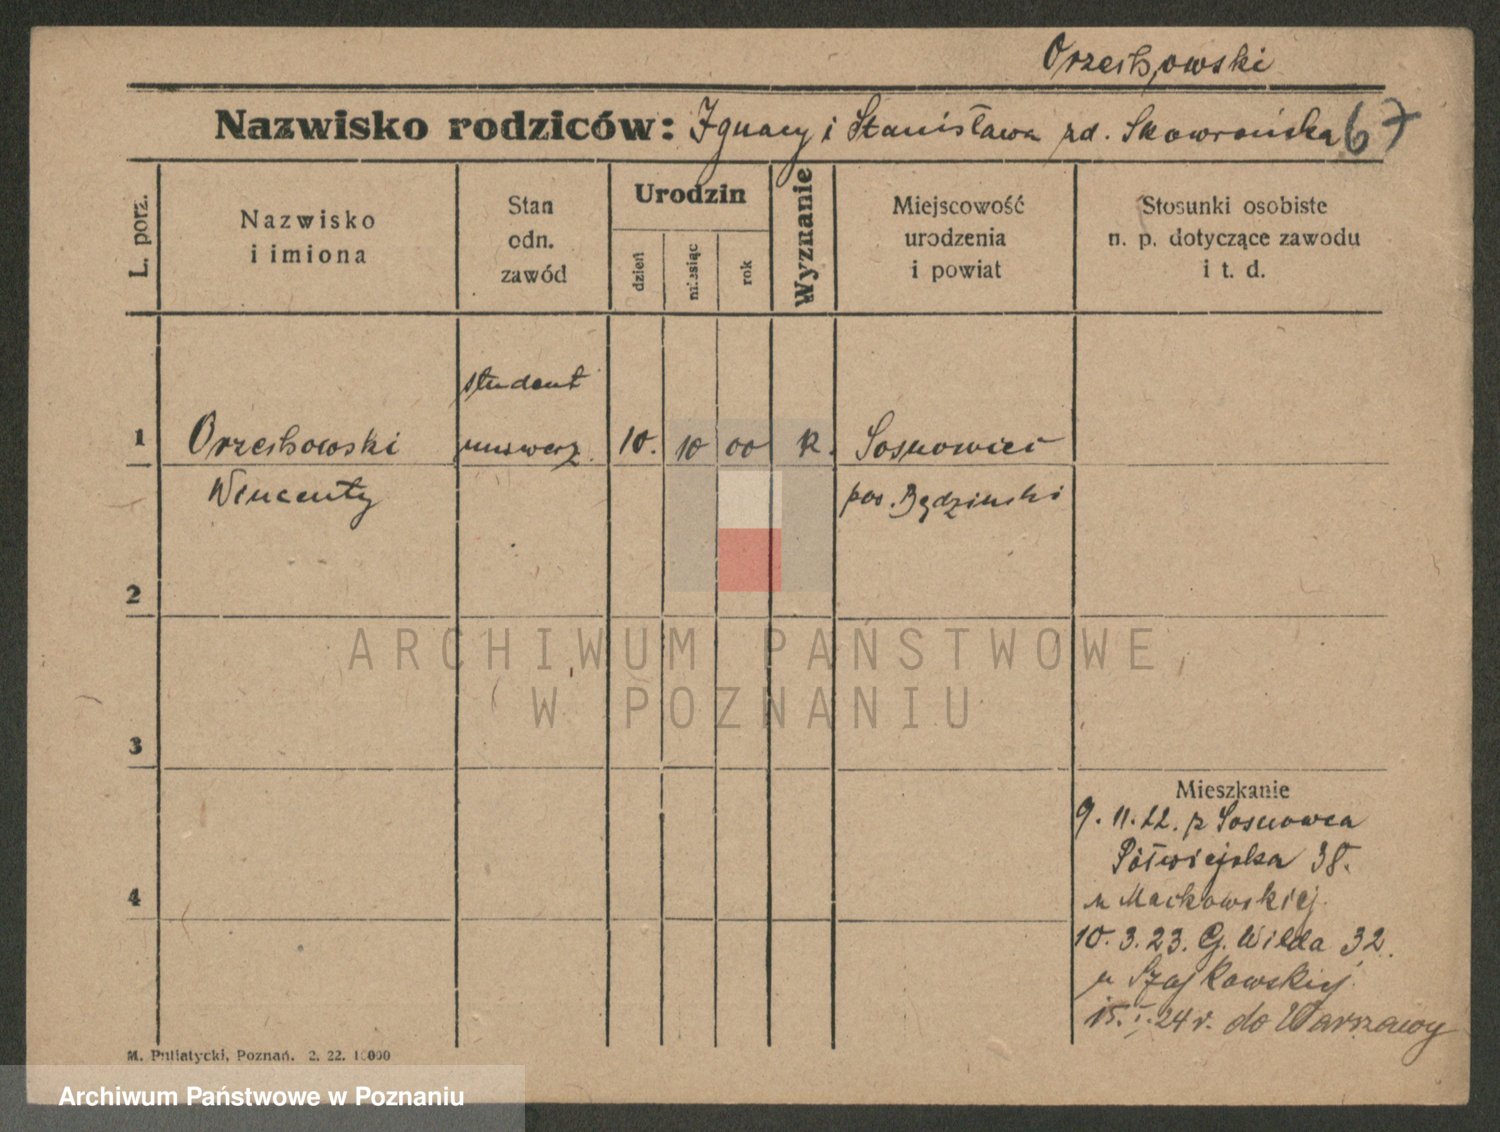 Orzechowski
Nazwisko rodziców: Ignacy i Stanisława zd. Skowrońska 67
L. porz.
Nazwisko
i imiona
Stan
odn.
zawód
Urodzin
dzień
miesiąc
rok
Wyznanie
Miejscowość
urodzenia
i powiat
Stosunki osobiste
n. p. dotyczące zawodu
i t. d.
student
1 Orzechowski uniwerz. 10. 10 00 k. Sosnowiec
Wincenty pow. Będziński
2
ARCHIWUM PAŃSTWOWE
W POZNANIU
3
Mieszkanie
9. 11. 22. z Sosnowca
Półwiejska 38.
4
u Maćkowskiej
10. 3. 23. G. Wilda 32.
u Szajkowskiej
15. I. 24 r. do Warszawy
M. Putiatycki, Poznań. 2. 22. 10000
Archiwum Państwowe w Poznaniu